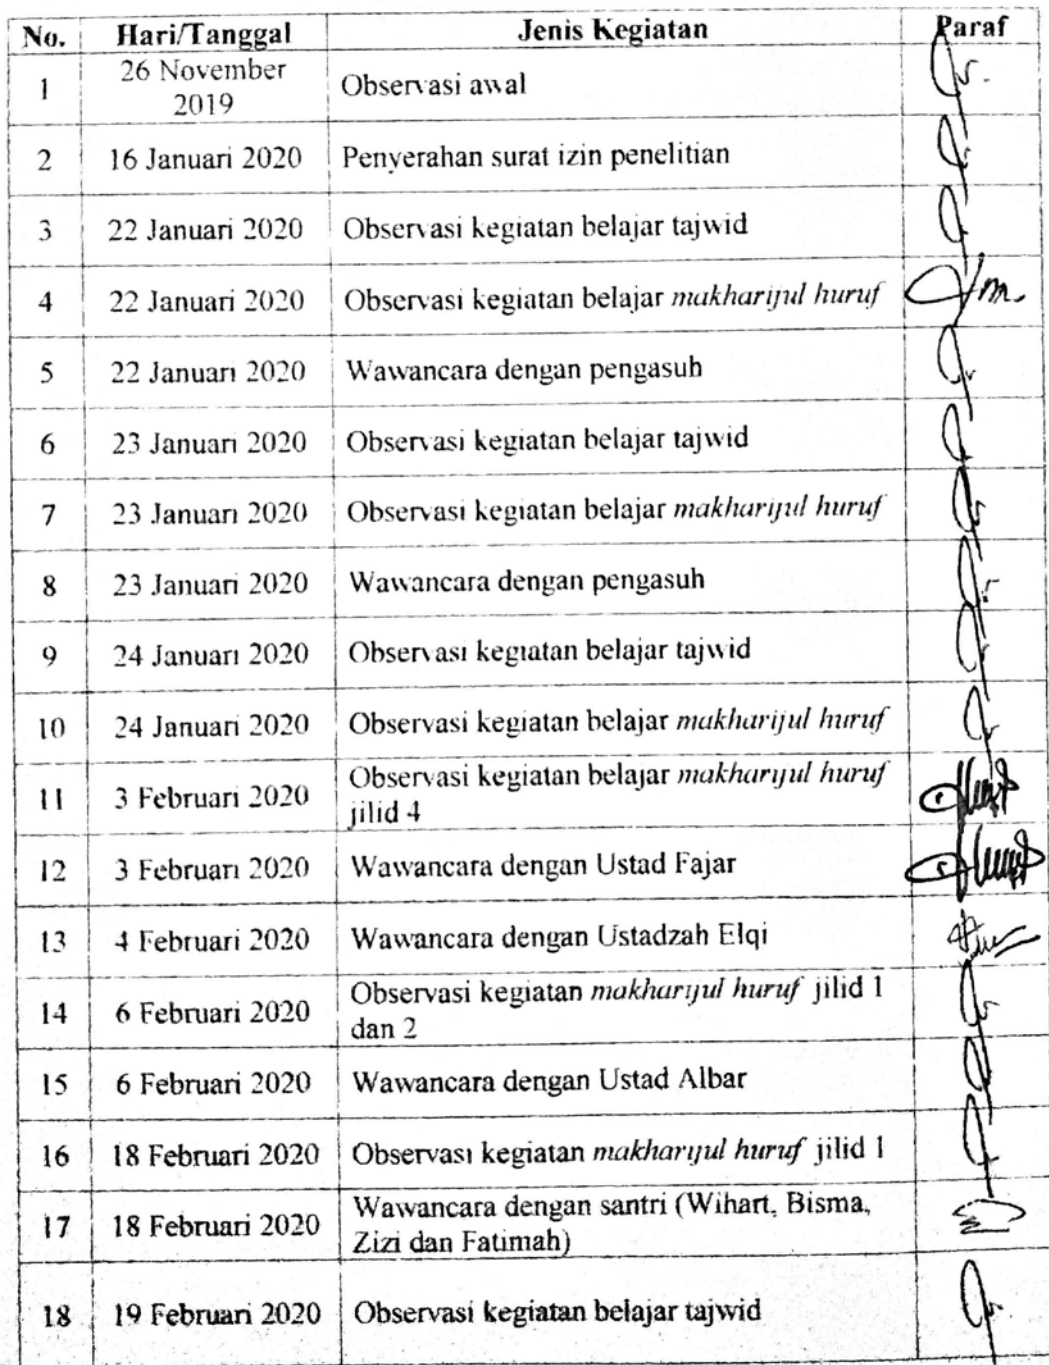 No. Hari/Tanggal Jenis Kegiatan Paraf
1 26 November 2019 Observasi awal
2 16 Januari 2020 Penyerahan surat izin penelitian
3 22 Januari 2020 Observasi kegiatan belajar tajwid
4 22 Januari 2020 Observasi kegiatan belajar makharijul huruf
5 22 Januari 2020 Wawancara dengan pengasuh
6 23 Januari 2020 Observasi kegiatan belajar tajwid
7 23 Januari 2020 Observasi kegiatan belajar makharijul huruf
8 23 Januari 2020 Wawancara dengan pengasuh
9 24 Januari 2020 Observasi kegiatan belajar tajwid
10 24 Januari 2020 Observasi kegiatan belajar makharijul huruf
11 3 Februari 2020 Observasi kegiatan belajar makharijul huruf
jilid 4
12 3 Februari 2020 Wawancara dengan Ustad Fajar
13 4 Februari 2020 Wawancara dengan Ustadzah Elqi
14 6 Februari 2020 Observasi kegiatan makharijul huruf jilid 1
dan 2
15 6 Februari 2020 Wawancara dengan Ustad Albar
16 18 Februari 2020 Observasi kegiatan makharijul huruf jilid 1
17 18 Februari 2020 Wawancara dengan santri (Wihart, Bisma,
Zizi dan Fatimah)
18 19 Februari 2020 Observasi kegiatan belajar tajwid